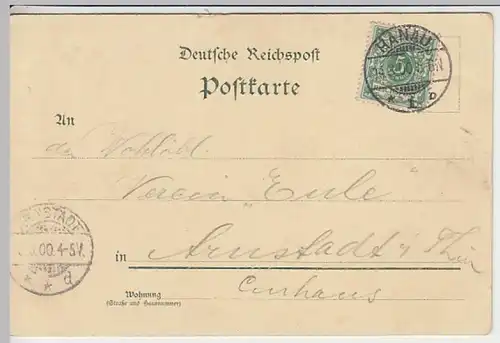 Deutsche Reichspost
Postkarte
HANAU
5
* 1 b
An
den Wohllöbl.
Verein "Eule"
ARNSTADT
.00. 4-5V.
* * d
in Arnstadt i/ Thür
Curhaus
Wohnung
(Straße und Hausnummer)